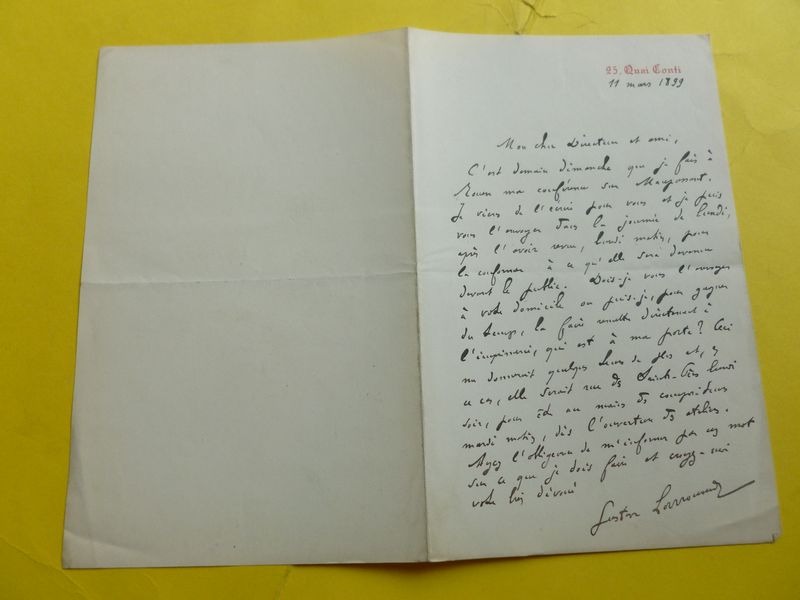 25, Quai Conti
11 mars 1899
Mon cher Directeur et ami,
C'est demain dimanche que je fais à
Rouen ma conférence sur Maupassant.
Je viens de l'écrire pour vous et je puis
vous l'envoyer dans la journée de lundi,
après l'avoir revue, lundi matin, pour
la conformer à ce qu'elle sera devenue
devant le public. Dois-je vous l'envoyer
à votre domicile ou puis-je, pour gagner
du temps, la faire remettre directement à
l'imprimerie, qui est à ma porte? Ceci
me donnerait quelques heures de plus et, en
ce cas, elle serait rue des Saints-Pères lundi
soir, pour être aux mains des compositeurs
mardi matin, dès l'ouverture des ateliers.
Ayez l'obligeance de m'informer par un mot
sur ce que je dois faire et croyez-moi
votre très dévoué
Gustave Larroumet